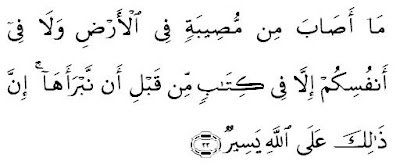 مَآ أَصَابَ مِن مُّصِيبَةٖ فِي ٱلۡأَرۡضِ وَلَا فِيٓ
أَنفُسِكُمۡ إِلَّا فِي كِتَٰبٖ مِّن قَبۡلِ أَن نَّبۡرَأَهَآۚ إِنَّ
ذَٰلِكَ عَلَى ٱللَّهِ يَسِيرٞ ٢٢